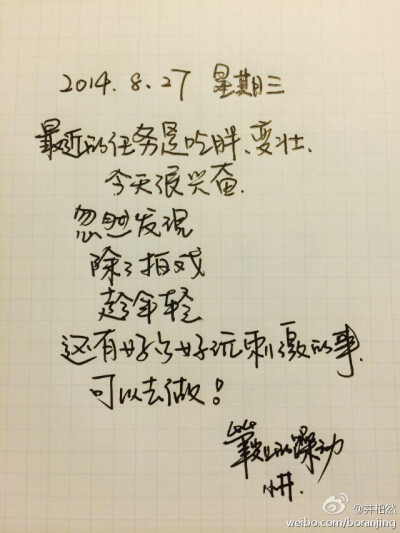 2014.8.27 星期三
最近的任务是吃胖、变壮.
今天很兴奋.
忽然发现
除了拍戏
趁年轻
还有好多好玩刺激的事
可以去做!
的躁动
井.
@井柏然
weibo.com/boranjing